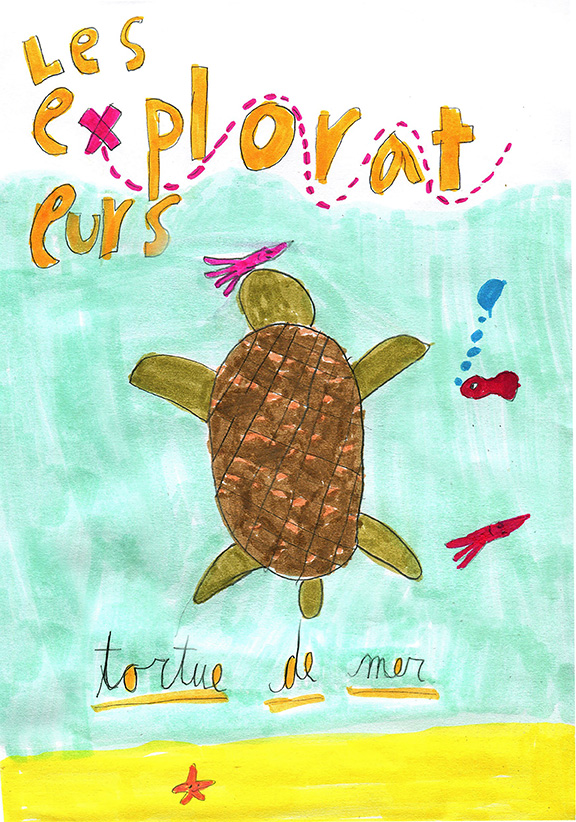 Les
explorat
eurs
tortue de mer